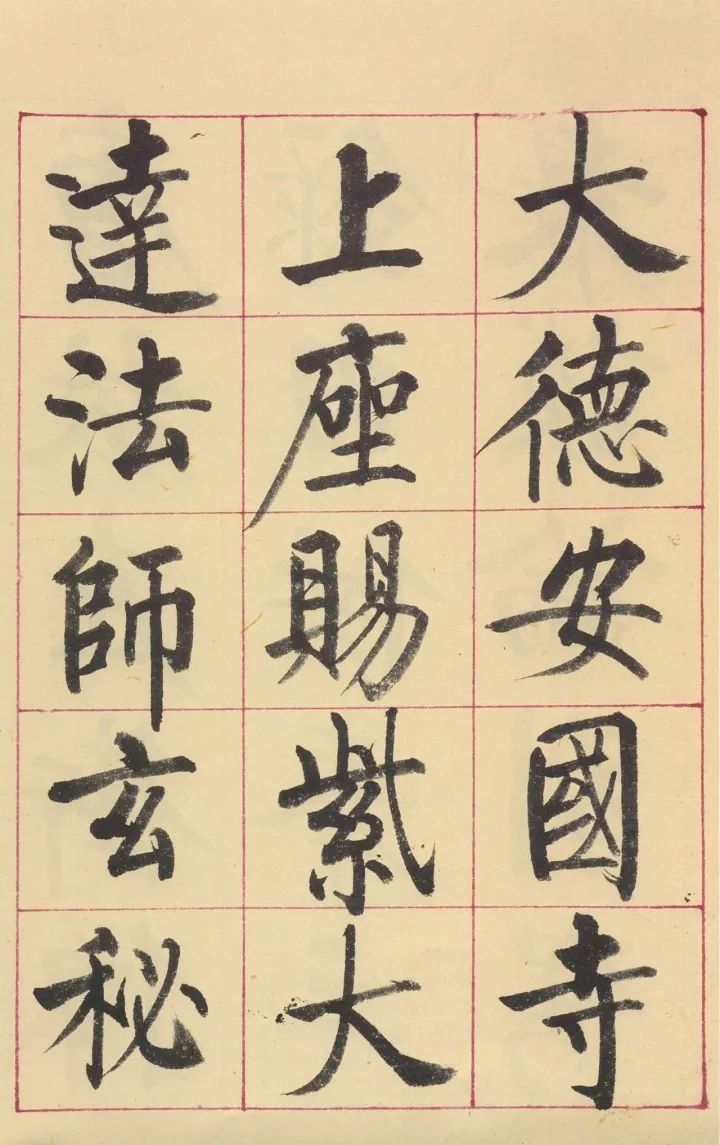 大德安國寺
上座賜紫大
達法師玄秘